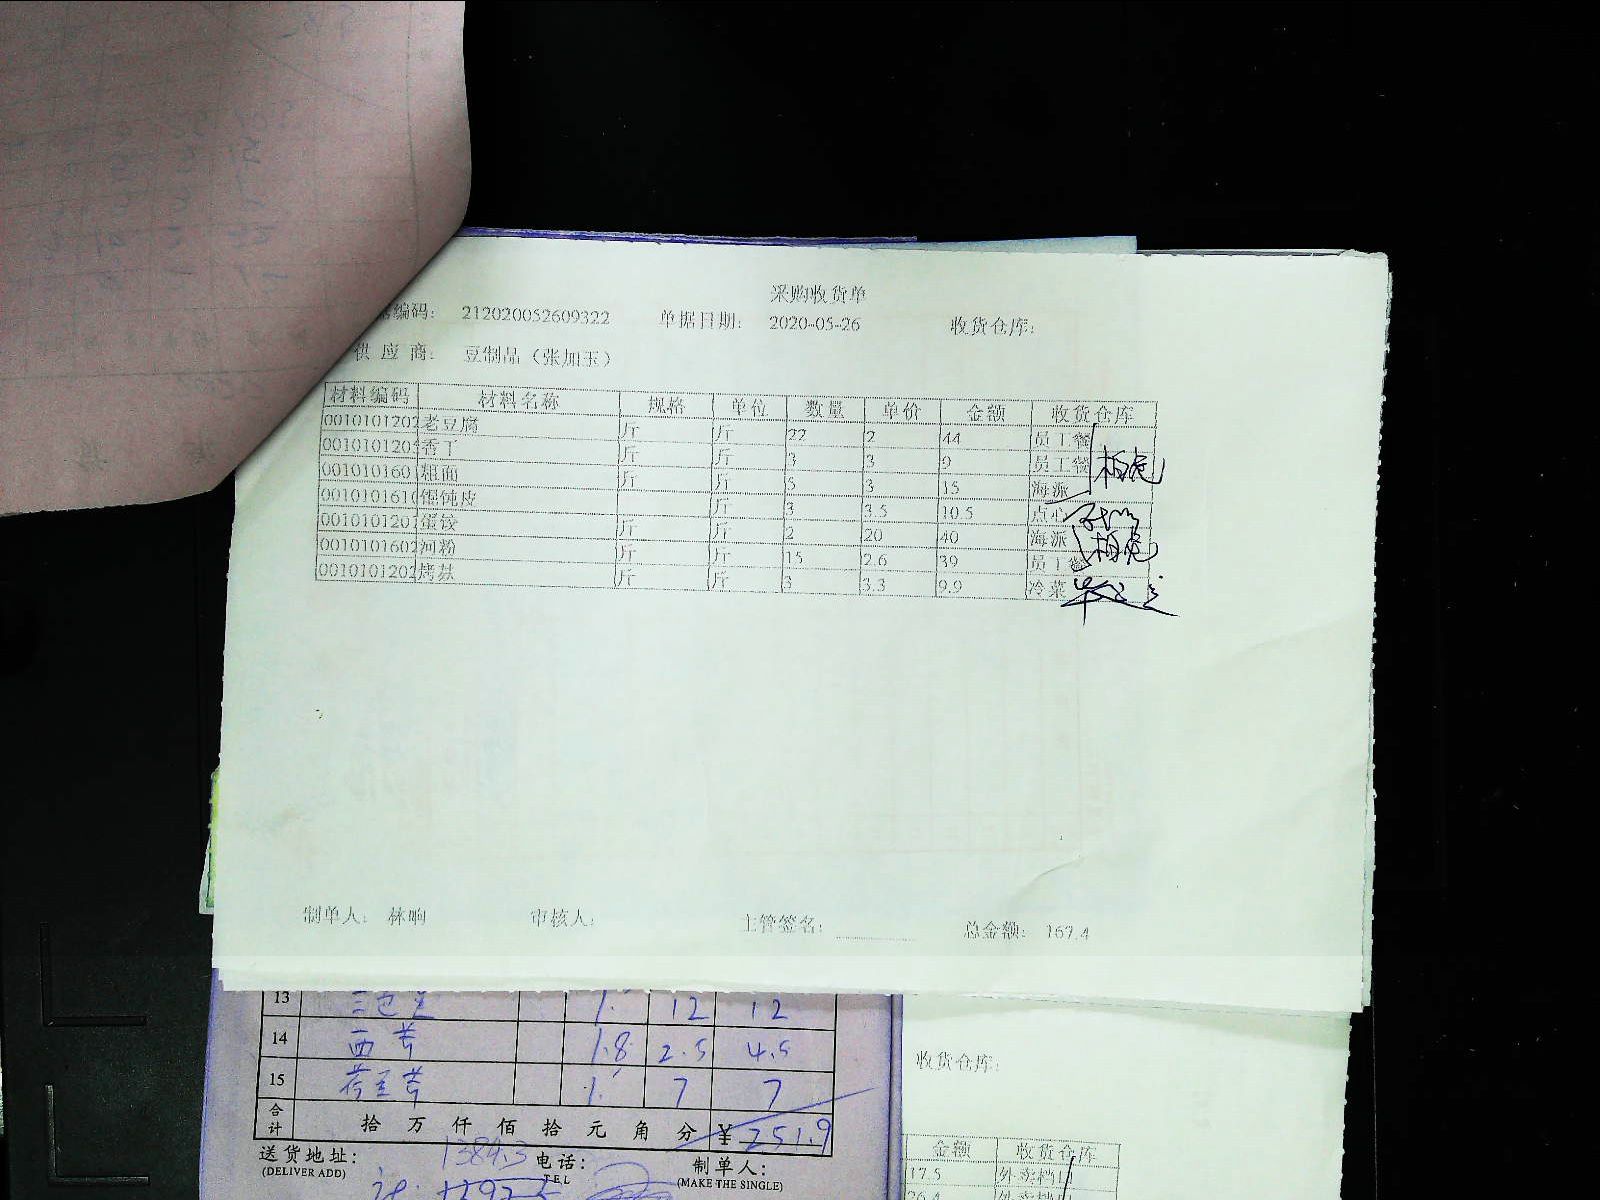 采购收货单
据编码: 212020052609322 单据日期: 2020-05-26 收货仓库:
供 应 商: 豆制品（张加玉）
材料编码 材料名称 规格 单位 数量 单价 金额 收货仓库
0010101202 老豆腐 斤 斤 22 2 44 员工餐
001010120 香干 斤 斤 3 3 9 员工餐
001010160 粗面 斤 斤 5 3 15 海派
001010161 馄饨皮 斤 3 3.5 10.5 点心
001010120 蛋饺 斤 斤 2 20 40 海派
0010101602 河粉 斤 斤 15 2.6 39 员工餐
0010101202 烤麸 斤 斤 3 3.3 9.9 冷菜
制单人: 林响 审核人: 主管签名: 总金额: 167.4
13 1. 12 12
14 西芹 1.8 2.5 4.5
15 1. 7 7
合计 拾 万 仟 佰 拾 元 角 分 ¥ 251.9
送货地址: 电话: 制单人:
(DELIVER ADD) TEL (MAKE THE SINGLE)
1384.3
收货仓库:
金额 收货仓库
17.5 外卖档口
26.4